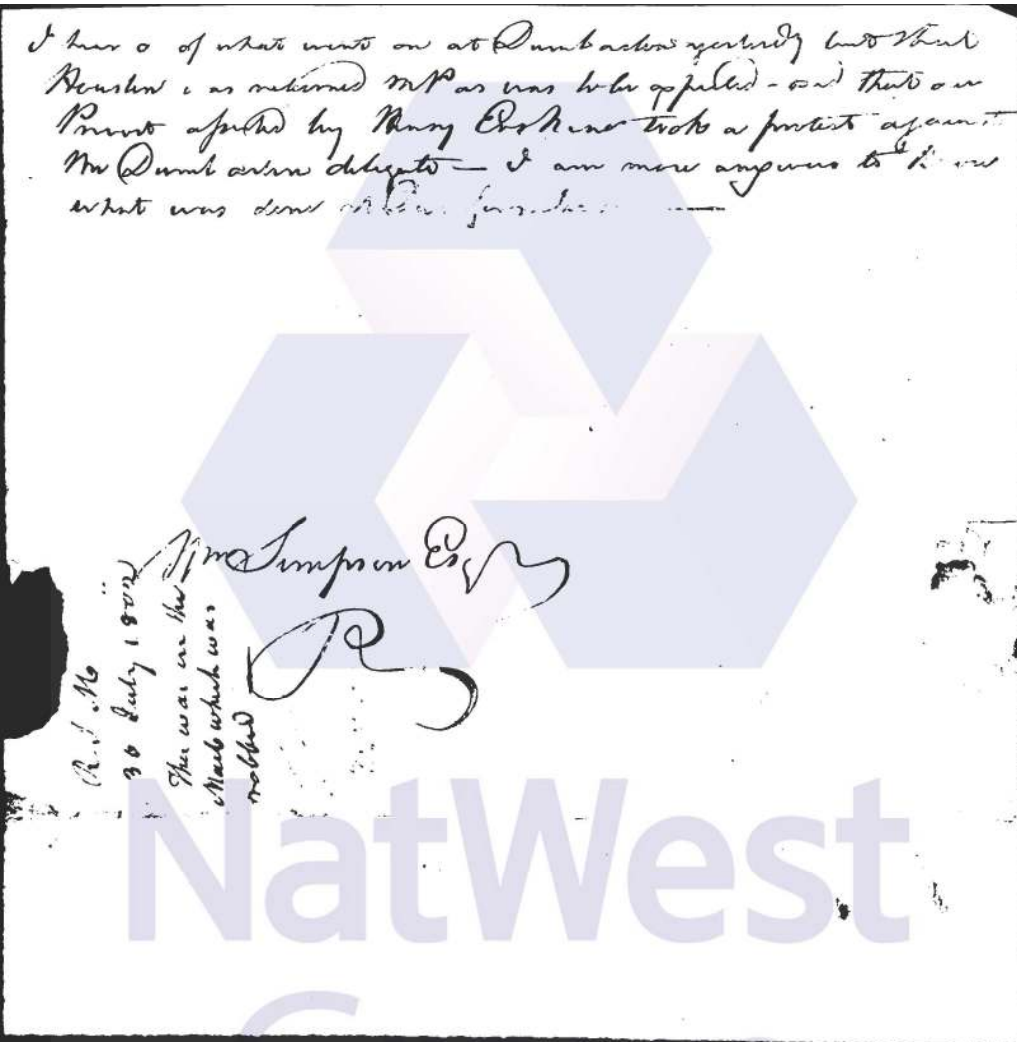 I hear o of what went on at Dumbarton yesterday but that
Houston was returned MP as was to be expected - and that our
Provost assisted by Henry Erskine took a protest against
the Dumbarton delegate — I am more anxious to know
what was done
Wm Simpson Esqr
R
30 July 1802
This was in the
Mail which was
robbed
NatWest